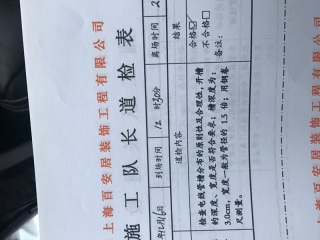 上海百安居装饰工程有限公司
施工队长道检表
年12月16日 到场时间 12 时30分 离场时间 2
道检内容 结果
检查电线管槽分布的原则性及合理性,开槽
的深度、宽度是否符合要求;槽深度为:
3.0cm,宽度一般为管径的 1.5 倍;用钢卷
尺测量。
合格☑
不合格□
备注: